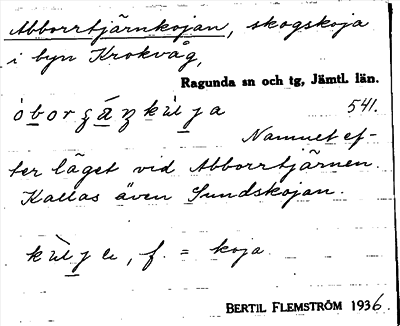 Abborrtjärnkojan, skogskoja
i byn Krokvåg,
Ragunda sn och tg, Jämtl. län.
541.
Namnet ef-
ter läget vid Abborrtjärnen.
Kallas även Sundskojan.
f. = koja
BERTIL FLEMSTRÖM 1936.